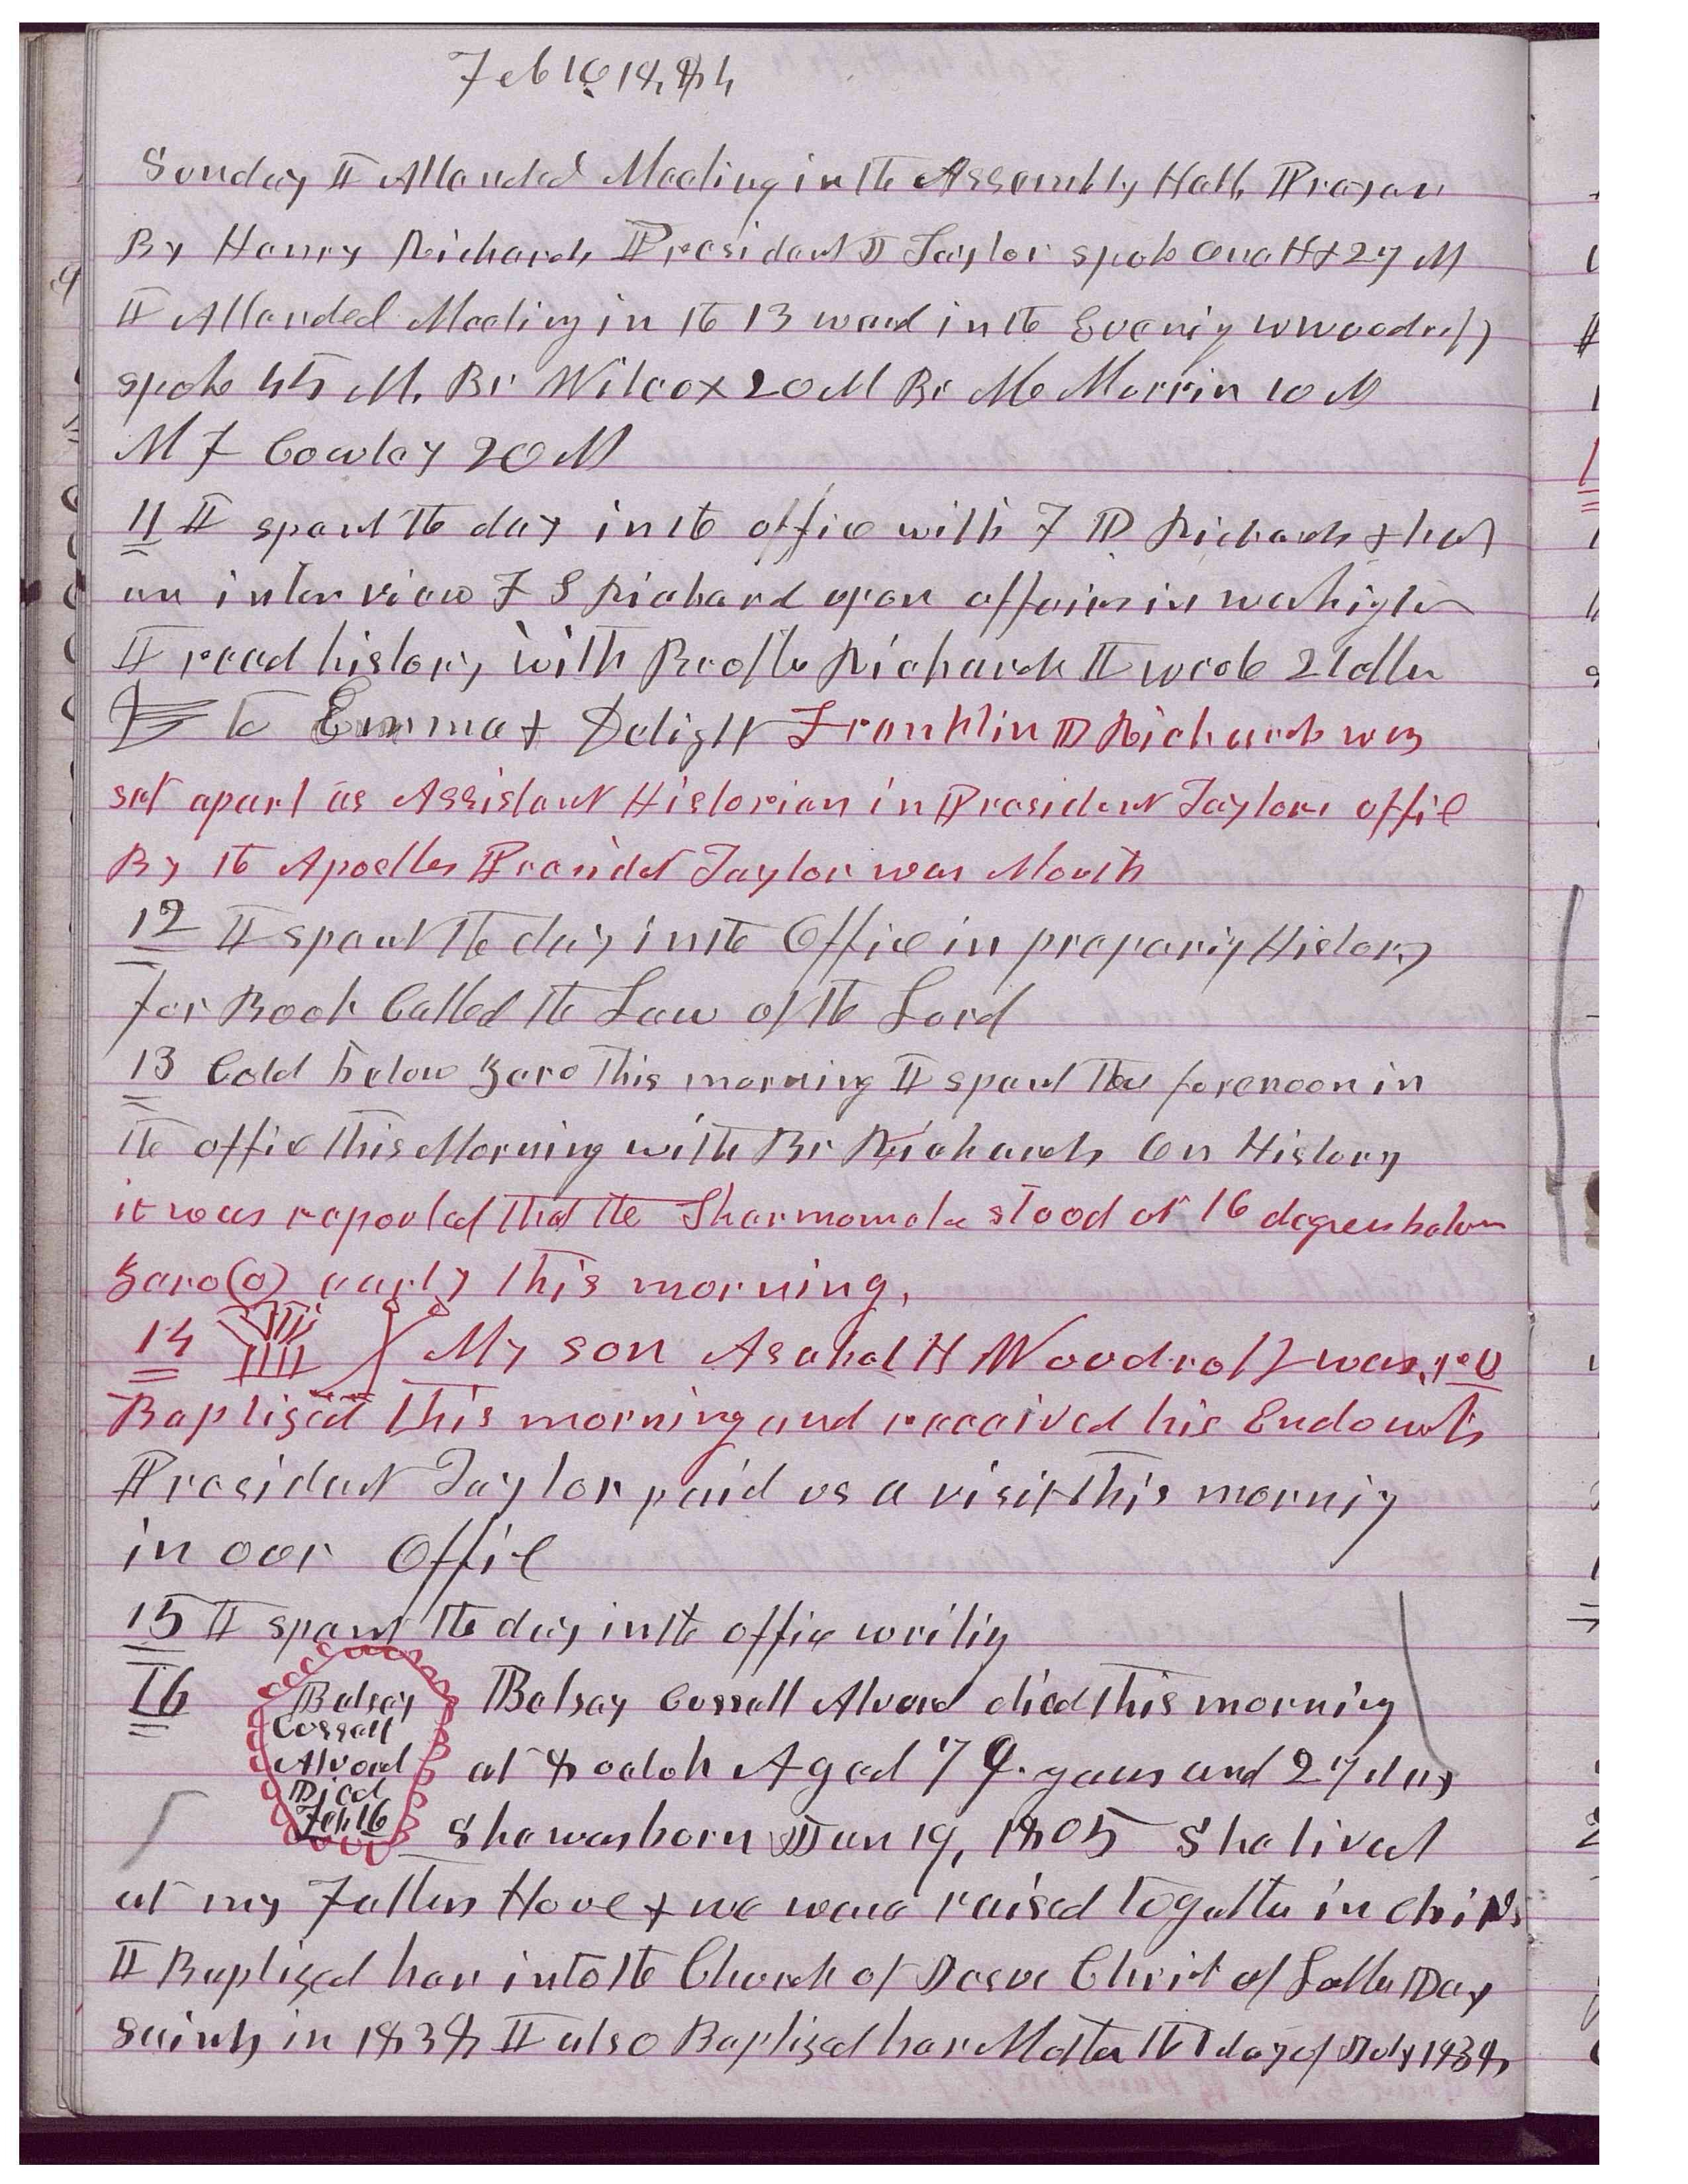 Feb 10 1884
Sunday I Attended Meeting in the Assembly Hall Prayer
By Henry Richards President J Taylor spoke One H & 27 M
I Attended Meeting in the 13 ward in the Evenig W Woodruff
spoke 45 M. Br Wilcox 20 M Br Mc Murrin 10 M
M F Cowley 20 M
11 I spent the day in the office with F D Richards & had
an interview F S Richard upon affairs in washigton
I read history with Brother Richards I wrote 2 letters
to Emma & Delight Franklin D Richards was
set apart as Assistant Historian in President Taylors office
By the Apostles President Taylor was Mouth
12 I spent the day in the Office in preparig History
for Book Called the Law of the Lord
13 Cold below Zero this morning I spent the forenoon in
the office this Morning with Br Richards On History
it was reported that the Thermometer stood at 16 degrees below
Zero (0) early this morning.
14 My son Asahel H Woodruff was re
Baptized this morning and received his Endowmts
President Taylor paid us a visit this mornig
in our Office
15 I spent the day in the office writig
16 Betsey Cossett Alvord died this morning
Betsey
Cossett
Alvord
Died
Feb 16
at 8 oclok Aged 79 years and 27 days
She was born Jan 19, 1805 She lived
at my Fathers House & we were raised together in
I Baptized her into the Church of Jesus Christ of Latter Day
Saints in 1838 I also Baptized her Mother the 1 day of July 1838